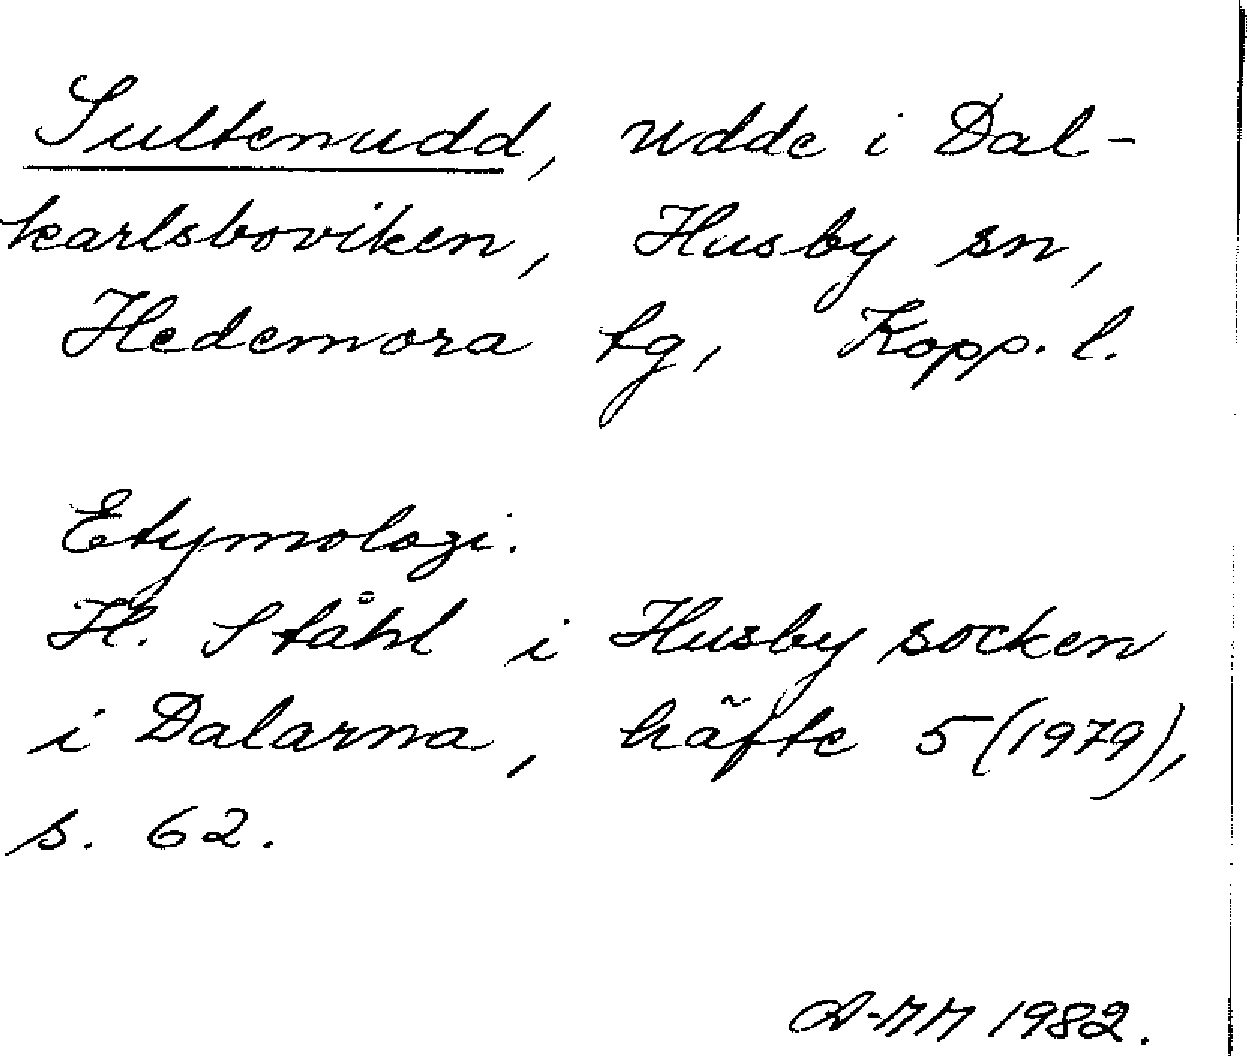 Sultenudd, udde i Dal-
karlsboviken, Husby sn,
Hedemora tg, Kopp. l.
Etymologi.
H. Ståhl i Husby socken
i Dalarna, häfte 5 (1979),
s. 62.
A-MM 1982.